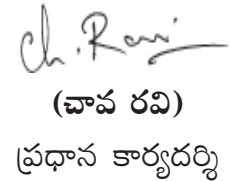 Ch. Ravi
(చావ రవి)
ప్రధాన కార్యదర్శి